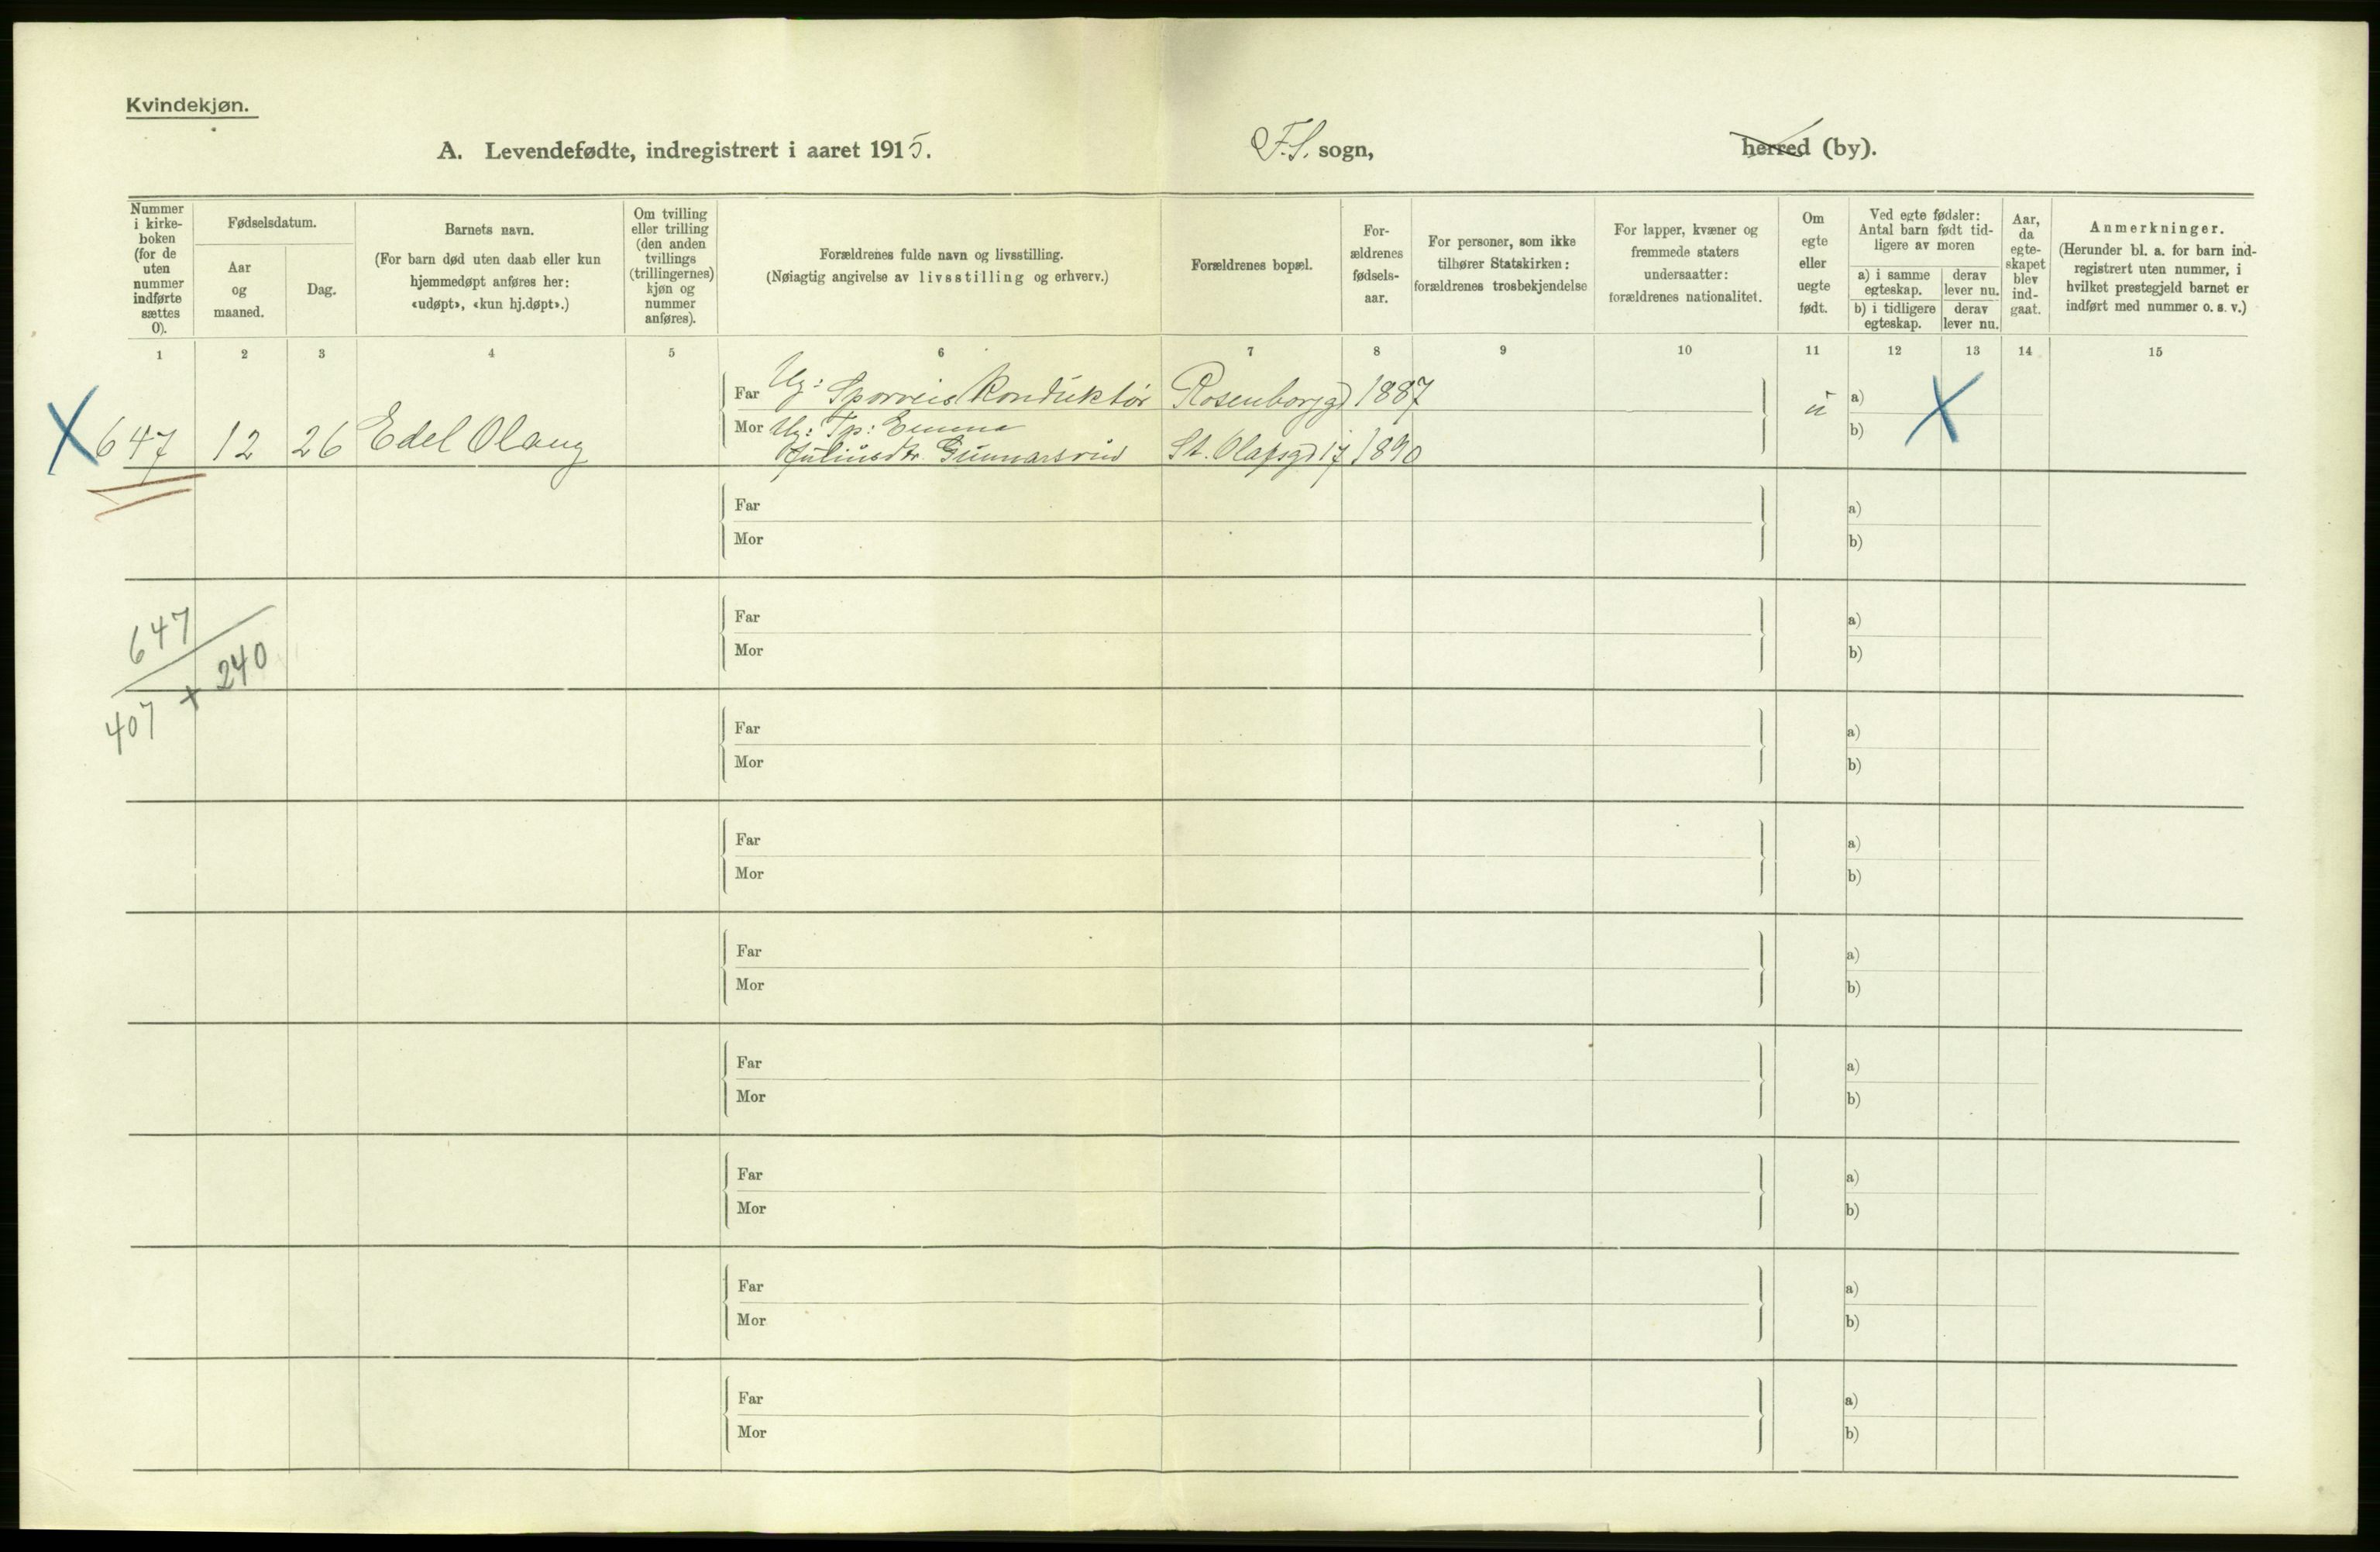 Kvindekjøn.
A. Levendefødte, indregistrert i aaret 1915.
F.S. sogn,
herred (by).
Nummer
i kirke-
boken
(for de
uten
nummer
indførte
sættes
0).
Fødselsdatum.
Aar
og
maaned.
Dag.
Barnets navn.
(For barn død uten daab eller kun
hjemmedøpt anføres her:
«udøpt», «kun hj.døpt».)
Om tvilling
eller trilling
(den anden
tvillings
(trillingernes)
kjøn og
nummer
anføres).
Forældrenes fulde navn og livsstilling.
(Nøiagtig angivelse av livsstilling og erhverv.)
Forældrenes bopæl.
For-
ældrenes
fødsels-
aar.
For personer, som ikke
tilhører Statskirken:
forældrenes trosbekjendelse
For lapper, kvæner og
fremmede staters
undersaatter:
forældrenes nationalitet.
Om
egte
eller
uegte
født.
Ved egte fødsler:
Antal barn født tid-
ligere av moren
a) i samme
egteskap.
derav
lever nu.
b) i tidligere
egteskap.
derav
lever nu.
Aar,
da
egte-
skapet
blev
ind-
gaat.
Anmerkninger.
(Herunder bl. a. for barn ind-
registrert uten nummer, i
hvilket prestegjeld barnet er
indført med nummer o. s. v.)
1 2 3 4 5 6 7 8 9 10 11 12 13 14 15
Far Ug: Sporveis Konduktør Rosenborggd 1887 a)
X 647 12 26 Edel Olaug Mor Ug: Tp: Emma ü b) X
Juliusdtr. Gunnarsrud St. Olafsgd 17 1890
Far a)
Mor b)
647
Far a)
Mor b)
+ 240
407
Far a)
Mor b)
Far a)
Mor b)
Far a)
Mor b)
Far a)
Mor b)
Far a)
Mor b)
Far a)
Mor b)
Far a)
Mor b)